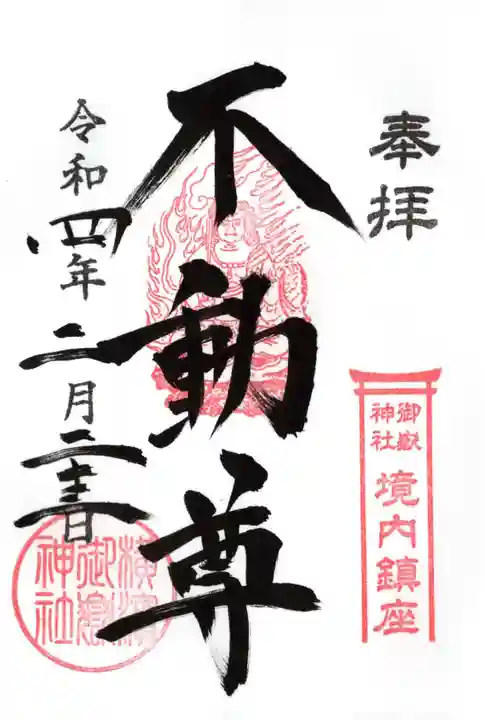 奉拝
御嶽神社
境内鎮座
不動尊
令和四年二月二十三日
横濱御嶽神社